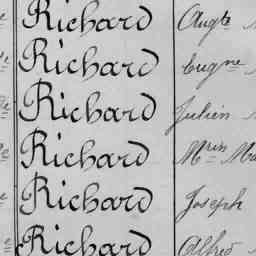 Richard Augte
Richard Eugne
Richard Julien
Richard Mrin
Richard Joseph
Richard Alfred